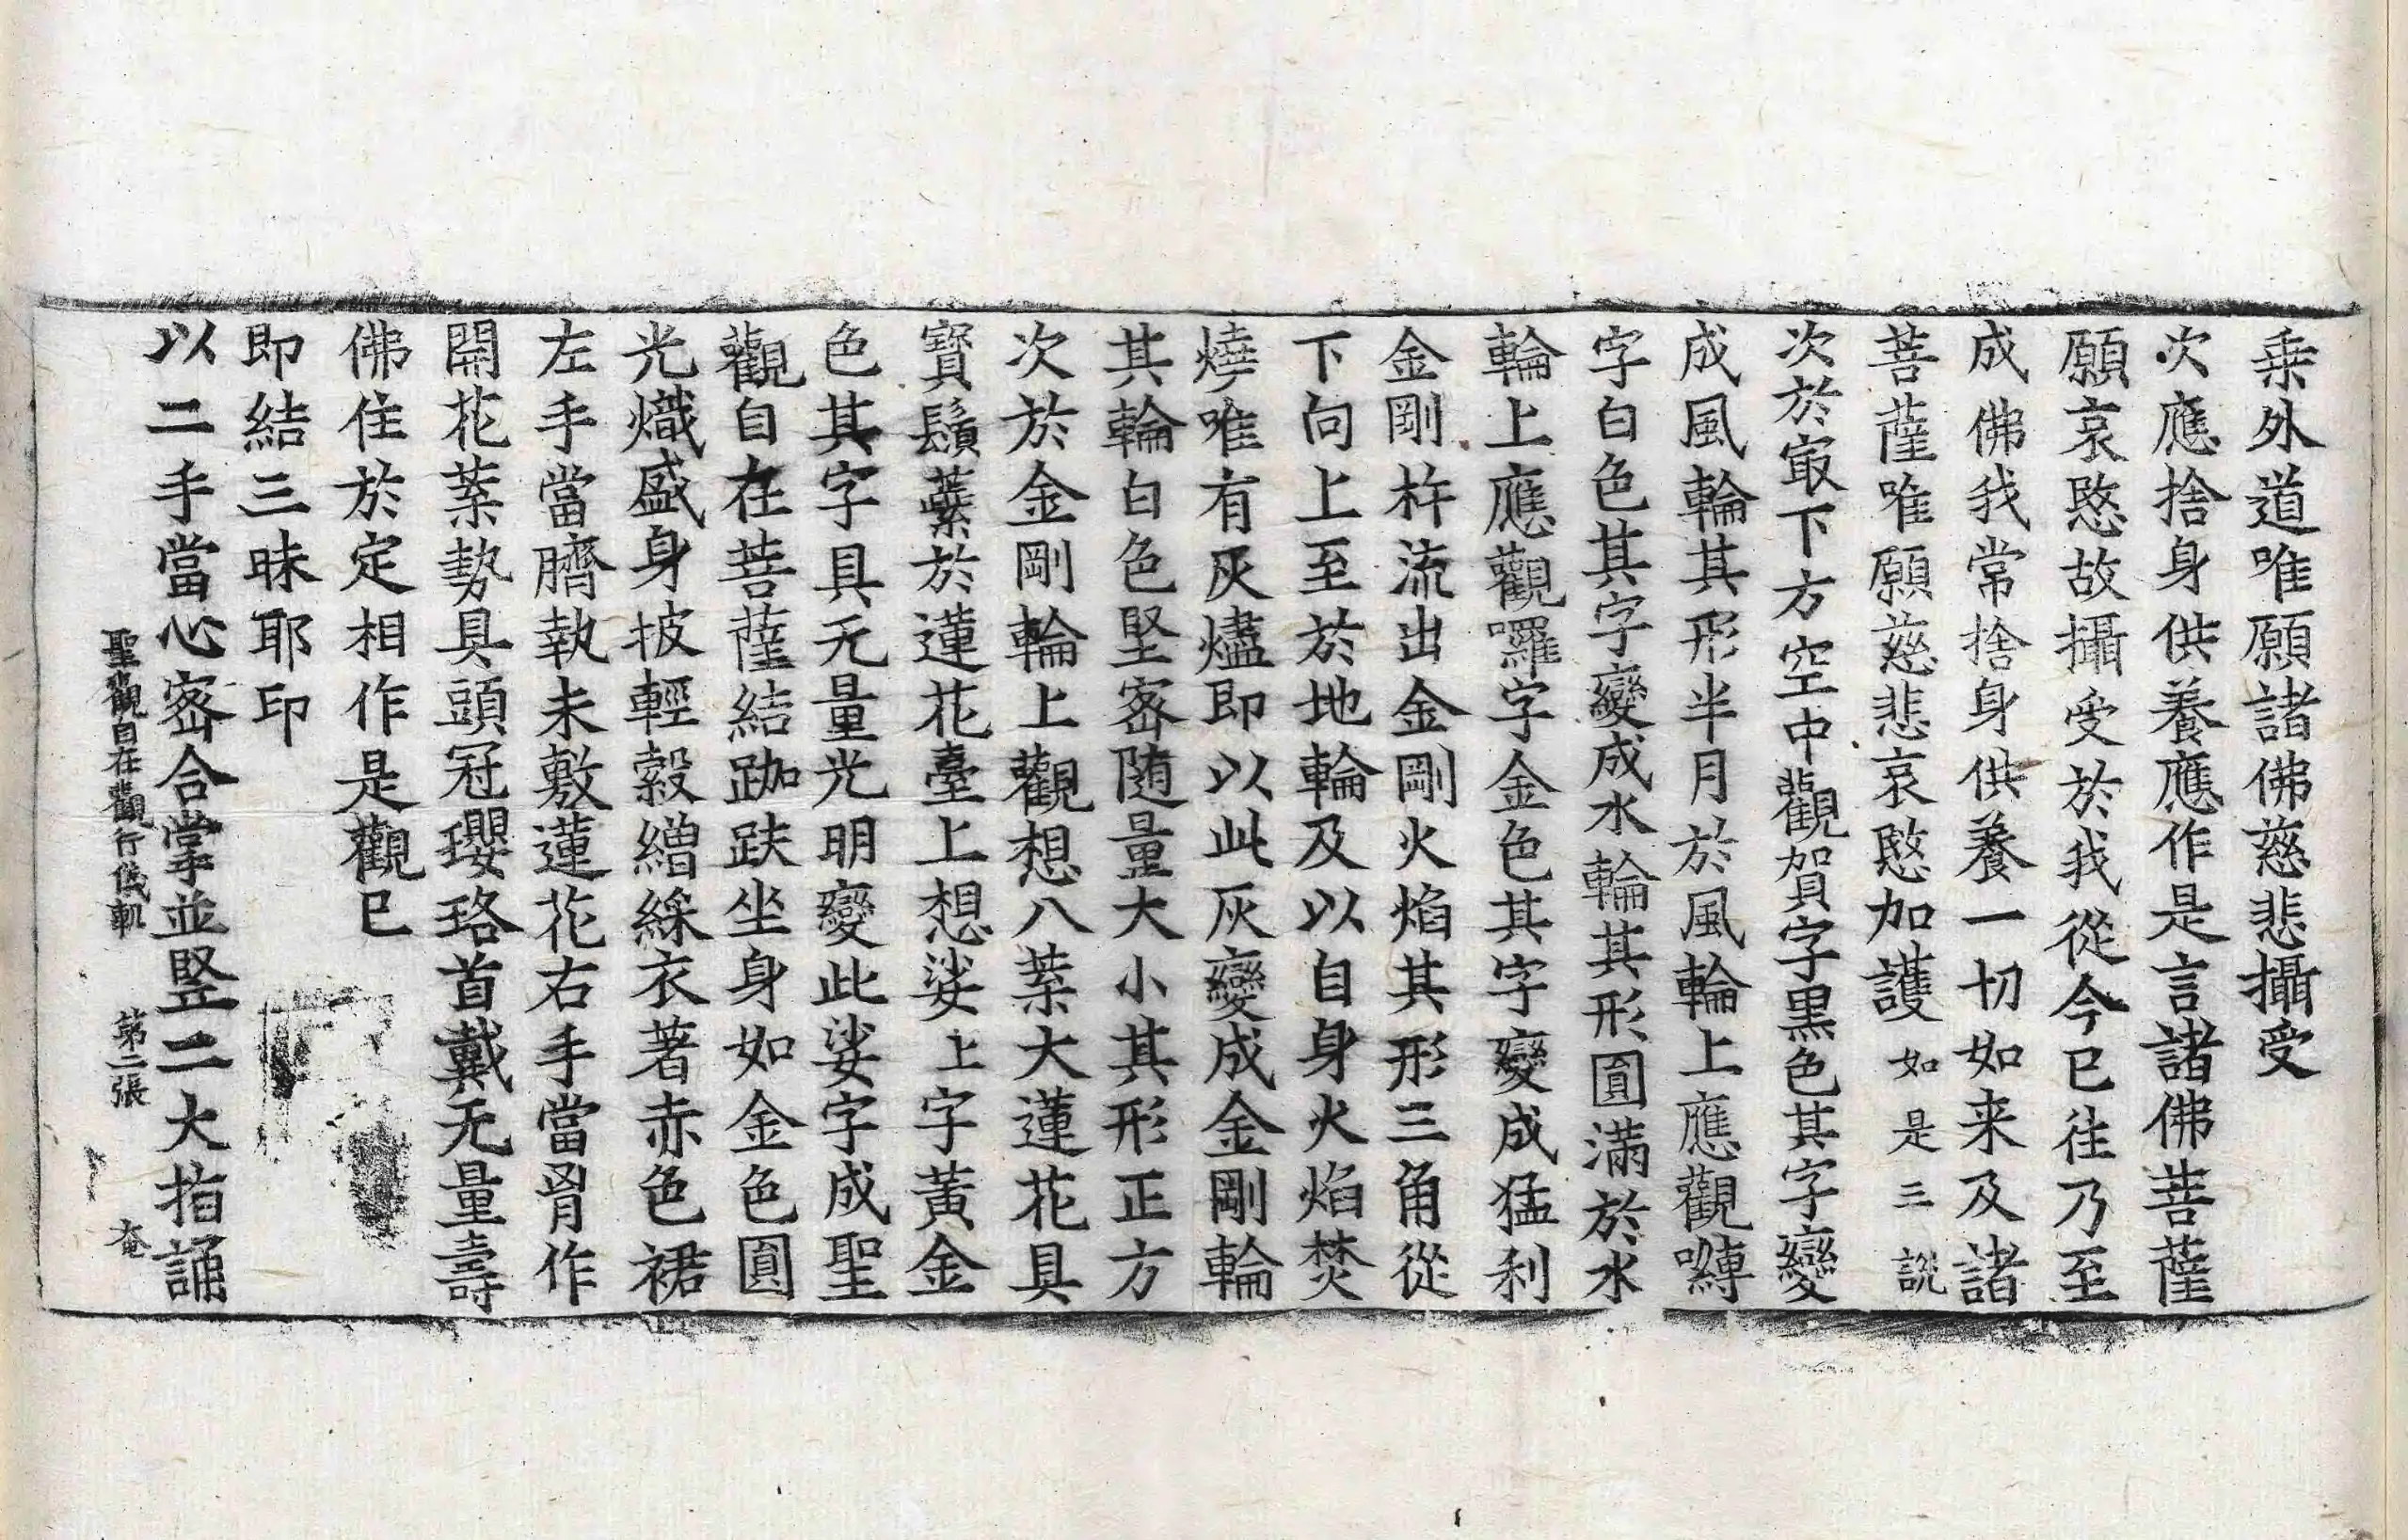 乗外道唯願諸佛慈悲攝受
次應捨身供養應作是言諸佛菩薩
願哀愍故攝受於我從今已往乃至
成佛我常捨身供養一切如来及諸
菩薩唯願慈悲哀愍加護如是三說
次於㝡下方空中觀賀字黑色其字變
成風輪其形半月於風輪上應觀嚩
字白色其字變成水輪其形圓滿於水
輪上應觀囉字金色其字變成猛利
金剛杵流出金剛火焰其形三角從
下向上至於地輪及以自身火焰焚
燒唯有灰燼即以此灰變成金剛輪
其輪白色堅宻随量大小其形正方
次於金剛輪上觀想八葉大蓮花具
寶鬚蘂於蓮花臺上想娑上字黃金
色其字具无量光明變此娑字成聖
觀自在菩薩結跏趺坐身如金色圓
光熾盛身披輕縠繒綵衣著赤色裙
左手當臍執未敷蓮花右手當胷作
開花葉勢具頭冠瓔珞首戴无量壽
佛住於定相作是觀已
即結三昧耶印
以二手當心宻合掌並竪二大指誦
聖觀自在觀行儀軌　第二張　奄